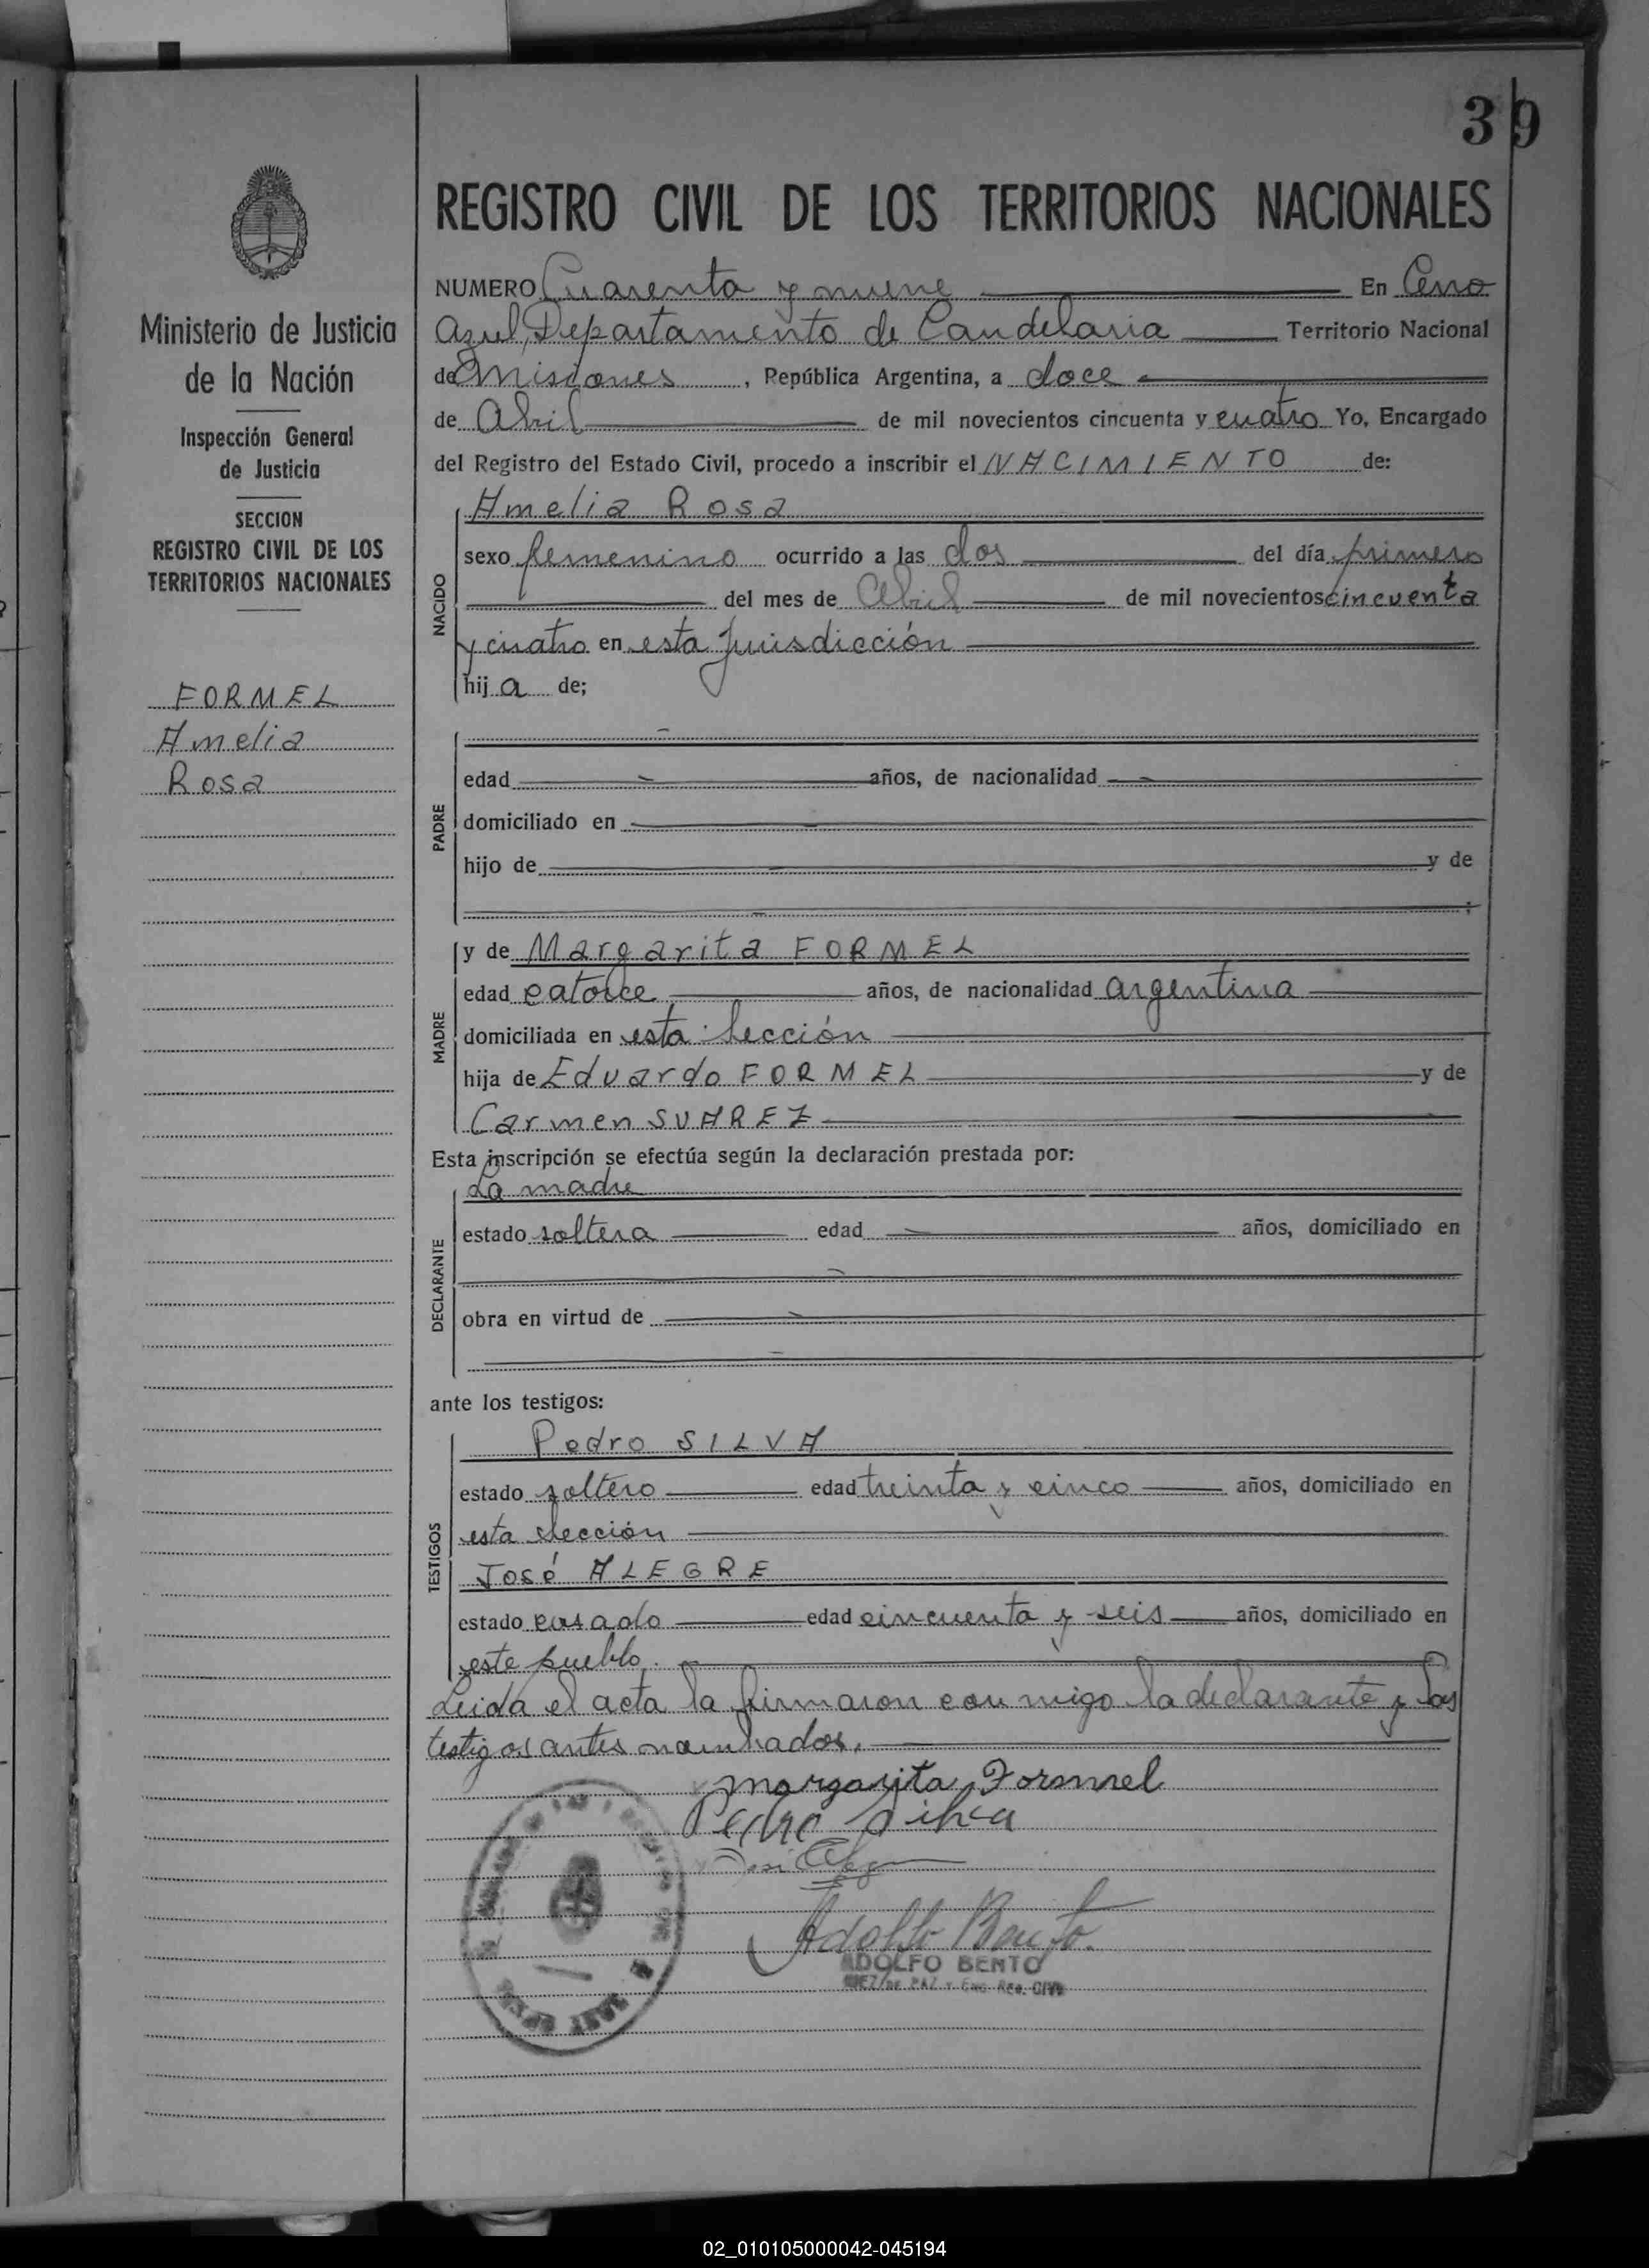 39
REGISTRO CIVIL DE LOS TERRITORIOS NACIONALES
Ministerio de Justicia
de la Nación
Inspección General
de Justicia
SECCION
REGISTRO CIVIL DE LOS
TERRITORIOS NACIONALES
FORMEL
Amelia
Rosa
NUMERO Cuarenta y nueve En Cerro
Azul, Departamento de Candelaria Territorio Nacional
de Misiones, República Argentina, a doce
de Abril de mil novecientos cincuenta y cuatro Yo, Encargado
del Registro del Estado Civil, procedo a inscribir el NACIMIENTO de:
NACIDO
Amelia Rosa
sexo femenino ocurrido a las dos del día primero
del mes de Abril de mil novecientos cincuenta
y cuatro en esta Jurisdicción
hija de;
PADRE
edad años, de nacionalidad
domiciliado en
hijo de y de
;
MADRE
y de Margarita FORMEL
edad catorce años, de nacionalidad argentina
domiciliada en esta Sección
hija de Eduardo FORMEL y de
Carmen SUAREZ
Esta inscripción se efectúa según la declaración prestada por:
DECLARANTE
La madre
estado soltera edad años, domiciliado en
obra en virtud de
ante los testigos:
TESTIGOS
Pedro SILVA
estado soltero edad treinta y cinco años, domiciliado en
esta Sección
José ALEGRE
estado casado edad cincuenta y seis años, domiciliado en
este pueblo.
Leida el acta la firmaron con migo la declarante y los
testigos antes nombrados.
Margarita Formel
Pedro Silva
José Alegre
Adolfo Bento.
ADOLFO BENTO
JUEZ DE PAZ Y ENC. REG. CIVIL
02_010105000042-045194